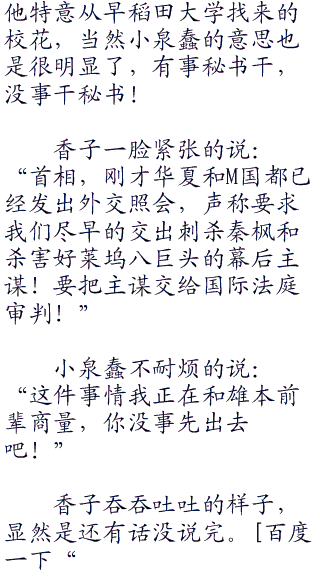 他特意从早稻田大学找来的
校花，当然小泉蠢的意思也
是很明显了，有事秘书干，
没事干秘书！
香子一脸紧张的说：
“首相，刚才华夏和M国都已
经发出外交照会，声称要求
我们尽早的交出刺杀秦枫和
杀害好莱坞八巨头的幕后主
谋！要把主谋交给国际法庭
审判！”
小泉蠢不耐烦的说：
“这件事情我正在和雄本前
辈商量，你没事先出去
吧！”
香子吞吞吐吐的样子，
显然是还有话没说完。[百度
一下“